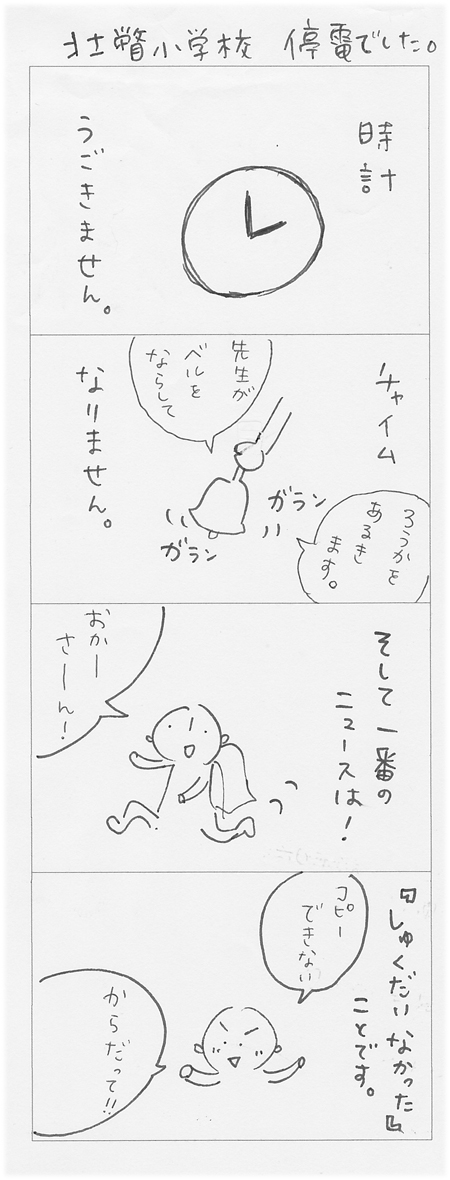 壮瞥小学校　停電でした。
時計
うごきません。
チャイム
なりません。
先生が
ベルを
ならして
ろうかを
あるき
ます。
ガラン
ガラン
そして一番の
ニュースは！
おかー
さーん！
『しゅくだいなかった』
ことです。
コピー
できない
からだって!!